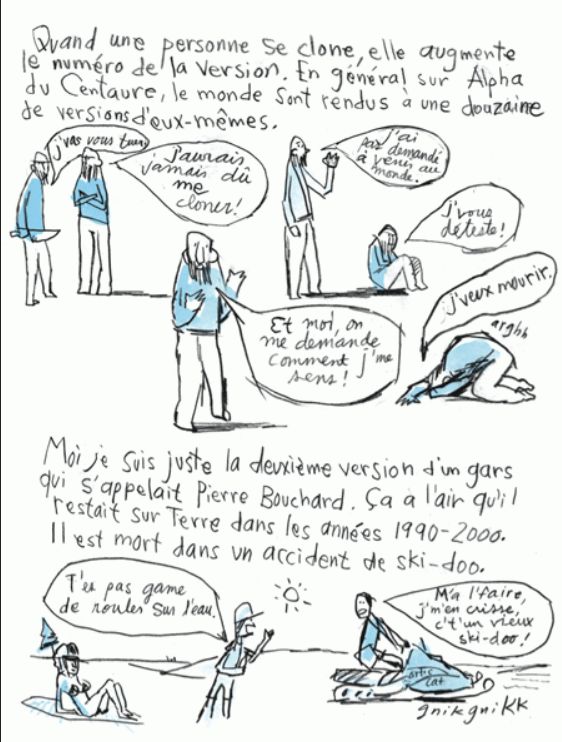 Quand une personne se clone, elle augmente
le numéro de la version. En général sur Alpha
du Centaure, le monde sont rendus à une douzaine
de versions d'eux-mêmes.
j'vas vous tuer
J'aurais
jamais dû
me
cloner!
j'ai
pas demandé
à venir au
monde.
j'vous
déteste!
j'veux mourir.
arghh
Et moi, on
me demande
comment j'me
sens!
Moi je suis juste la deuxième version d'un gars
qui s'appelait Pierre Bouchard. Ça a l'air qu'il
restait sur Terre dans les années 1990-2000.
Il est mort dans un accident de ski-doo.
T'es pas game
de rouler sur l'eau.
M'a l'faire,
j'm'en crisse,
c't'un vieux
ski-doo!
artic
cat
gnikgniKK